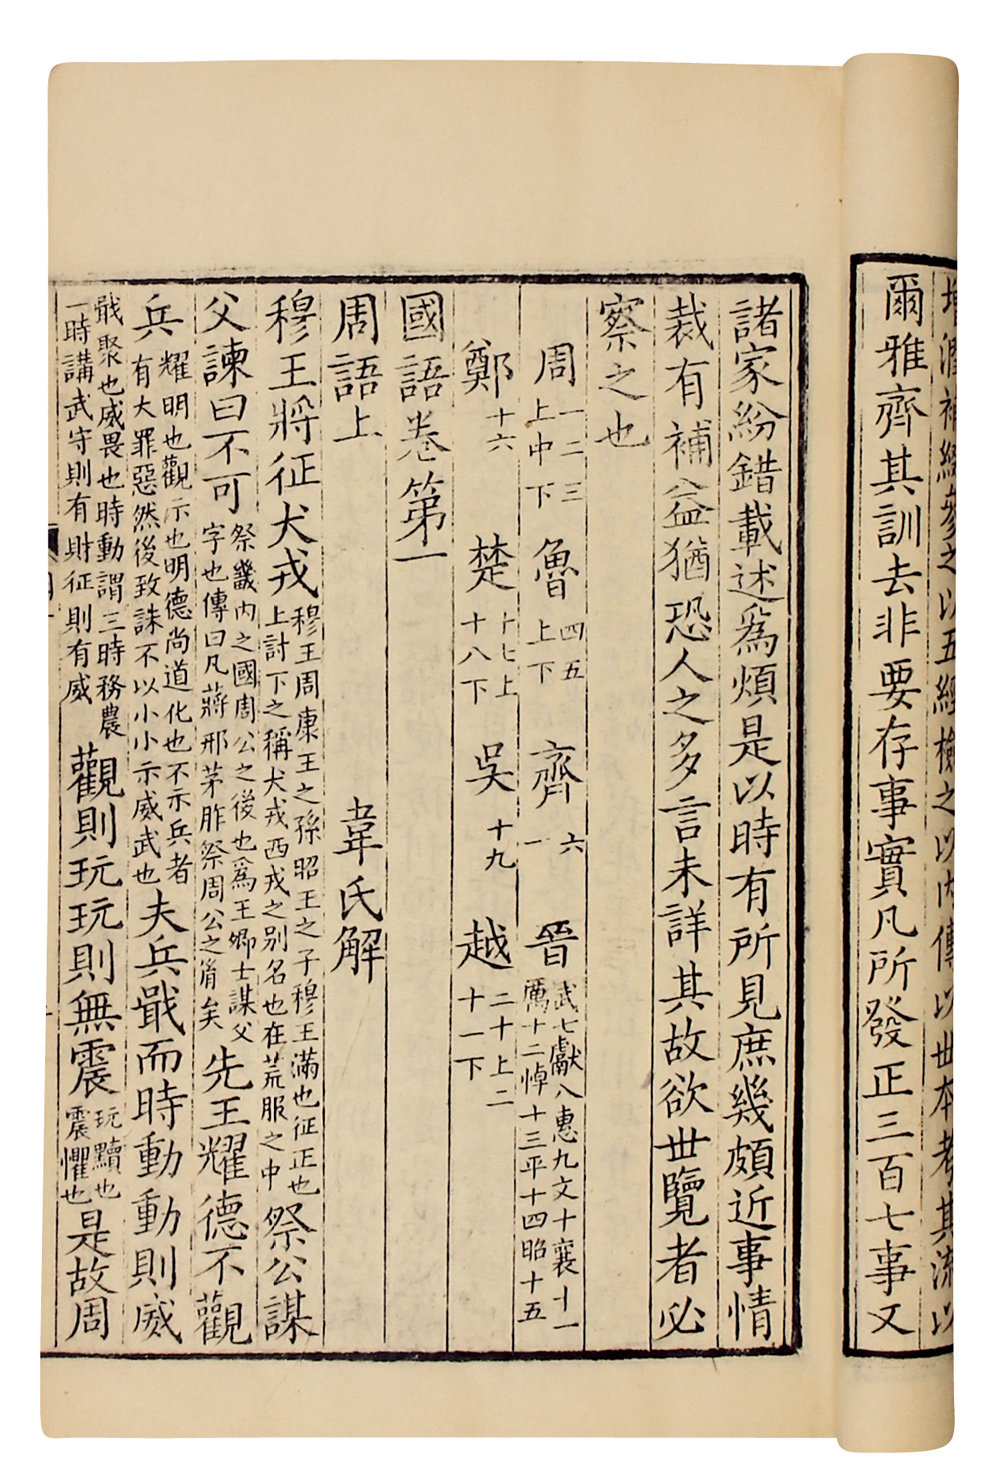 增潤補綴參之以五經檢之以內傳以世本考其流以
爾雅齊其訓去非要存事實凡所發正三百七事又
諸家紛錯載述爲煩是以時有所見庶幾頗近事情
裁有補益猶恐人之多言未詳其故欲世覽者必
察之也
周 一二三 上中下 魯 四五 上下 齊 六 一 晉 武七獻八惠九文十襄十一 厲十二悼十三平十四昭十五
鄭 十六 楚 十七上 十八下 吳 十九 越 二十上二 十一下
國語卷第一
周語上 韋氏解
穆王將征犬戎 穆王周康王之孫昭王之子穆王滿也征正也 上討下之稱犬戎西戎之别名也在荒服之中 祭公謀
父諫曰不可 祭畿內之國周公之後也爲王卿士謀父 字也傳曰凡蔣邢茅胙祭周公之胤矣 先王耀德不觀
兵 耀明也觀示也明德尚道化也不示兵者 有大罪惡然後致誅不以小小示威武也 夫兵戢而時動動則威
戢聚也威畏也時動謂三時務農 一時講武守則有財征則有威 觀則玩玩則無震 玩黷也 震懼也 是故周